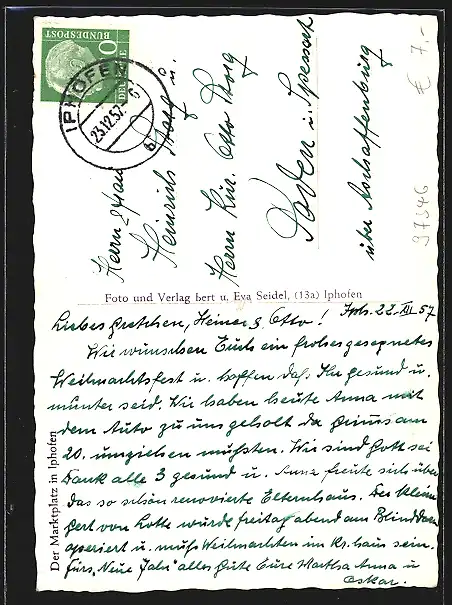 BUNDESPOST
10
IPHOFEN
23.12.57
b
Herrn u. Frau
Heinrich u.
Herrn Otto
Soden i. Spessart
über Aschaffenburg
€ 7.-
97346
Foto und Verlag bert u. Eva Seidel, (13a) Iphofen
Der Marktplatz in Iphofen
Iph. 22. XII 57
Liebes Gretchen, Heiner & Otto!
Wir wünschen Euch ein frohes gesegnetes
Weihnachtsfest u. hoffen daß Ihr gesund u.
munter seid. Wir haben heute Anna mit
dem Auto zu uns geholt da am
20. umziehen mußten. Wir sind Gott sei
Dank alle 3 gesund u. Anna freute sich über
das so schön renovierte Elternhaus. Der kleine
Gert von Lotte wurde freitag abend am Blinddarm
operiert u. muß Weihnachten im Kr.haus sein.
Fürs "Neue Jahr" alles Gute Eure Martha Anna u
Oskar.